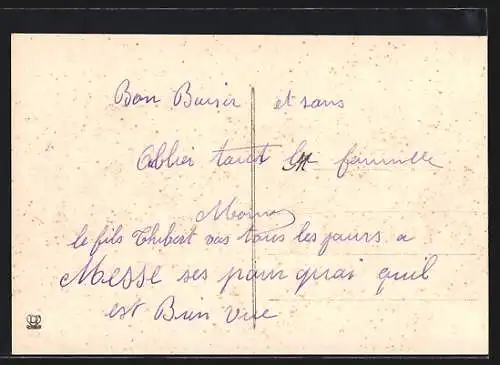 Bon Baisir et sans
Oblier tout la famille
Moman
le fils Thibert vas tous les jours a
Messe ses pour quoi quil
est Bien vue